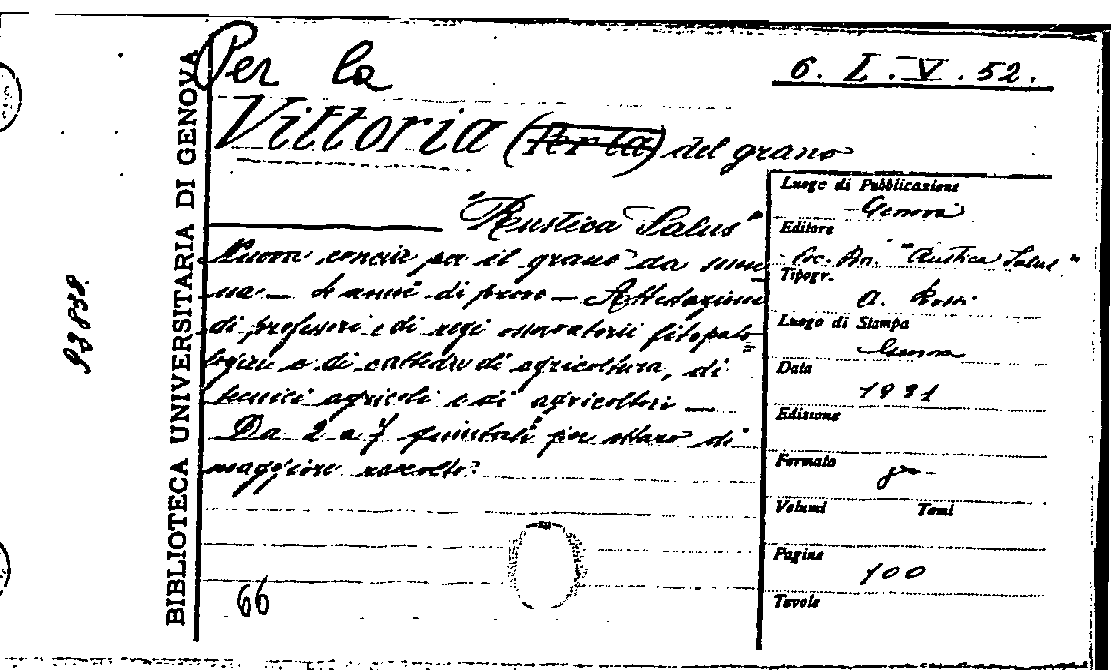 Per la
6. I. V. 52.
Vittoria (Per la) del grano
"Rustica Salus"
Nuova concia per il grano da seme
na — anni di prove — Attestazioni
di professori e di regi osservatorii fitopato=
logici e di cattedre di agricoltura, di
tecnici agricoli e di agricoltori —
Da 2 a 7 quintali per ettaro di
maggiore raccolto.
66
BIBLIOTECA UNIVERSITARIA DI GENOVA
Luogo di Pubblicazione
Genova
Editore
Soc. An. "Rustica Salus"
Tipogr.
A. Rossi
Luogo di Stampa
Genova
Data
1931
Edizione
Formato
Volumi Tomi
Pagine
100
Tavole